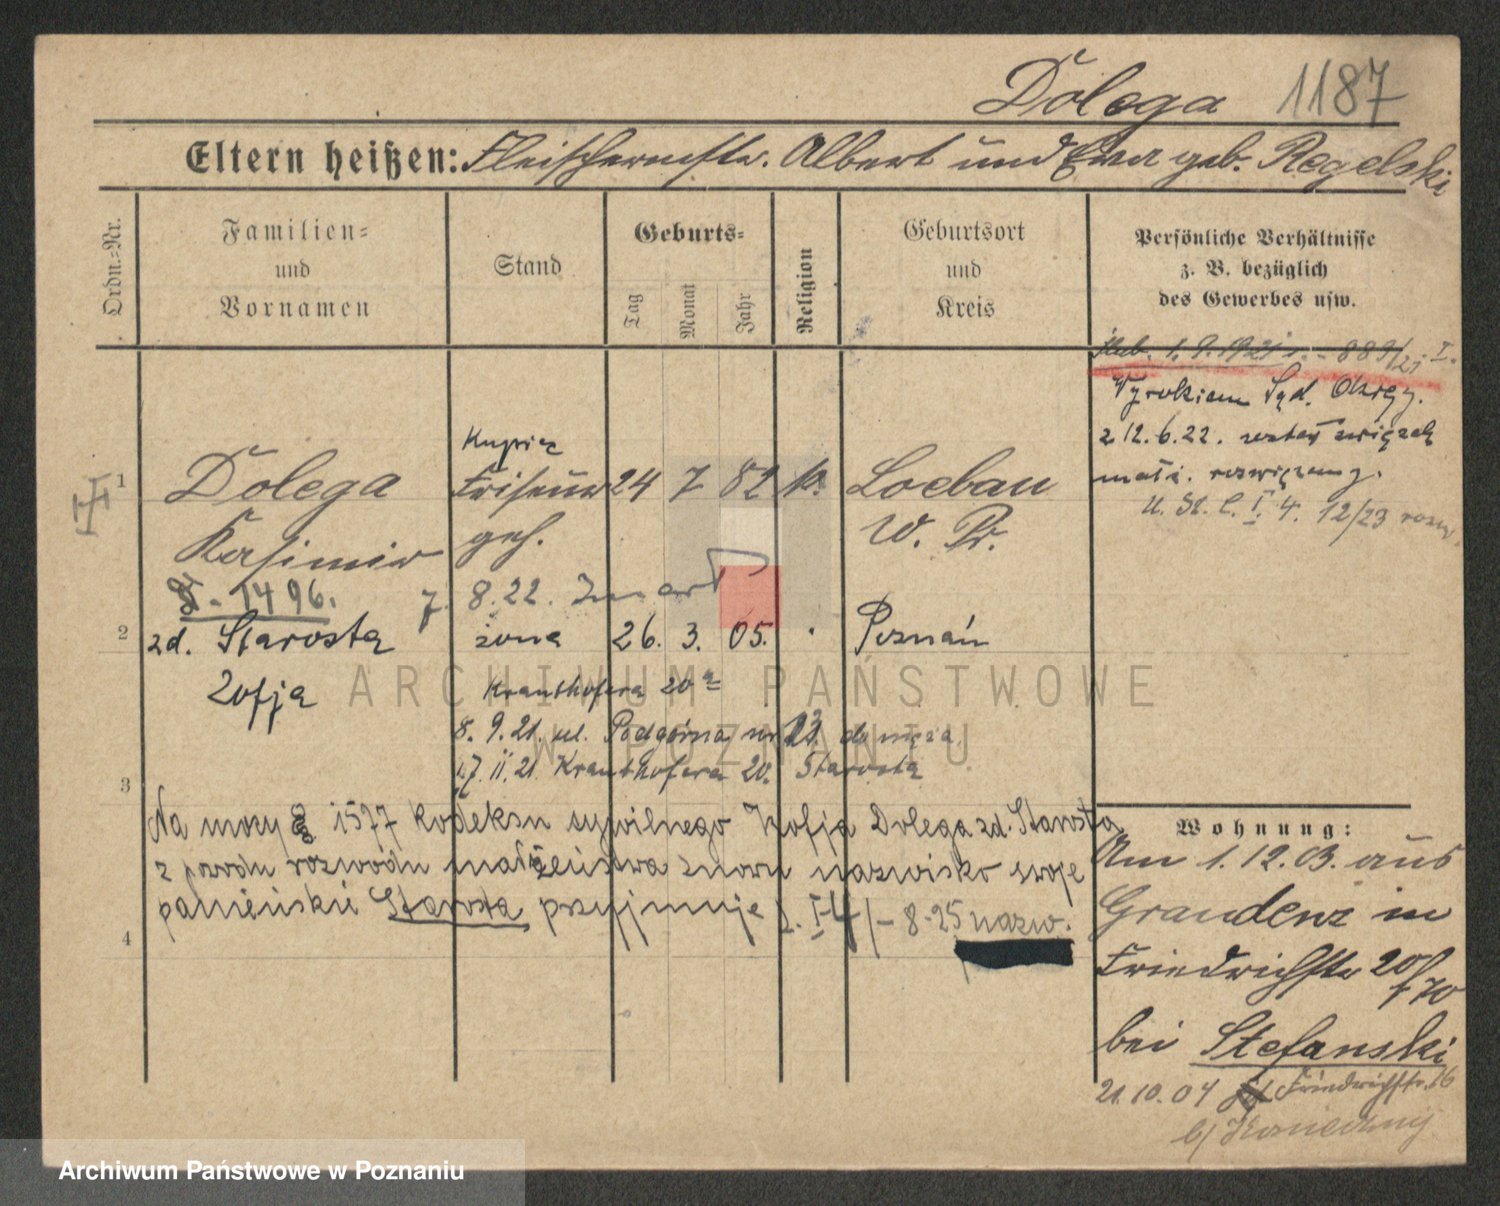 Dolega 1187
Eltern heißen: Fleischermstr. Albert und Eva geb. Regelski
Ordn.-Nr.
Familien-
und
Vornamen
Stand
Geburts-
Tag
Monat
Jahr
Religion
Geburtsort
und
Kreis
Persönliche Verhältnisse
z. B. bezüglich
des Gewerbes usw.
ślub. 1. 9. 1921 r. - 889/21 I.
Wyrokiem Sąd. Okręg.
z 12. 6. 22. został związek
małż. rozwiązany.
U. St. C. I. 4. 12/23 rozw.
Kupiec
1 Dolega Friseur 24 7 82 k. Loebau
Kasimir geh. W. Pr.
F - 1496. 7. 8. 22.
2 zd. Starosta żona 26. 3. 05. Poznań
Zofja Krauthofera 20a
8. 9. 21. ul. Podgórna nr 13. do męża
17. 11. 21. Krauthofera 20. Starosta
3
Na mocy § 1577 kodeksu cywilnego Zofja Dolega zd. Starosta
z powodu rozwodu małżeństwa znowu nazwisko swoje
panieńskie Starosta przyjmuje I-4/-8-25 nazw.
4
Wohnung:
Am 1. 12. 03. aus
Graudenz in
Friedrichstr 20/70
bei Stefanski
21. 10. 04 Friedrichstr. 16
b/ Konieczny
ARCHIWUM PAŃSTWOWE
W POZNANIU
Archiwum Państwowe w Poznaniu